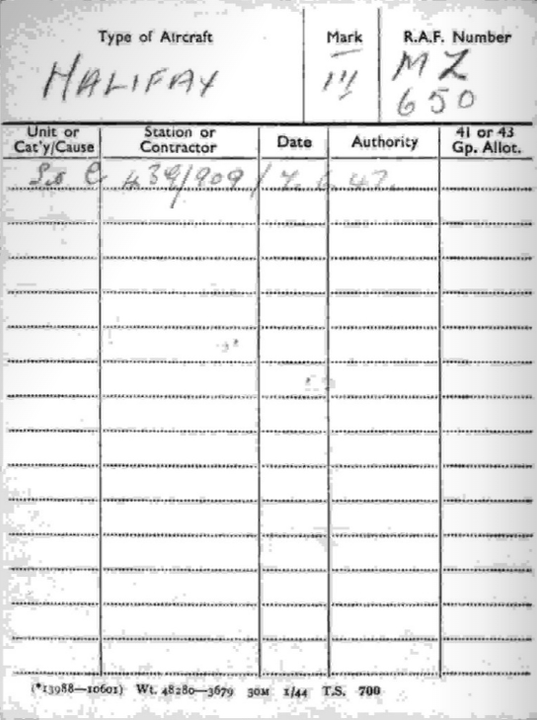 Type of Aircraft Mark R.A.F. Number
HALIFAX III MZ
650
Unit or Cat'y/Cause Station or Contractor Date Authority 41 or 43 Gp. Allot.
439/909 / 7. 47.
(*13988—10601) Wt. 48280—3679 30M 1/44 T.S. 700